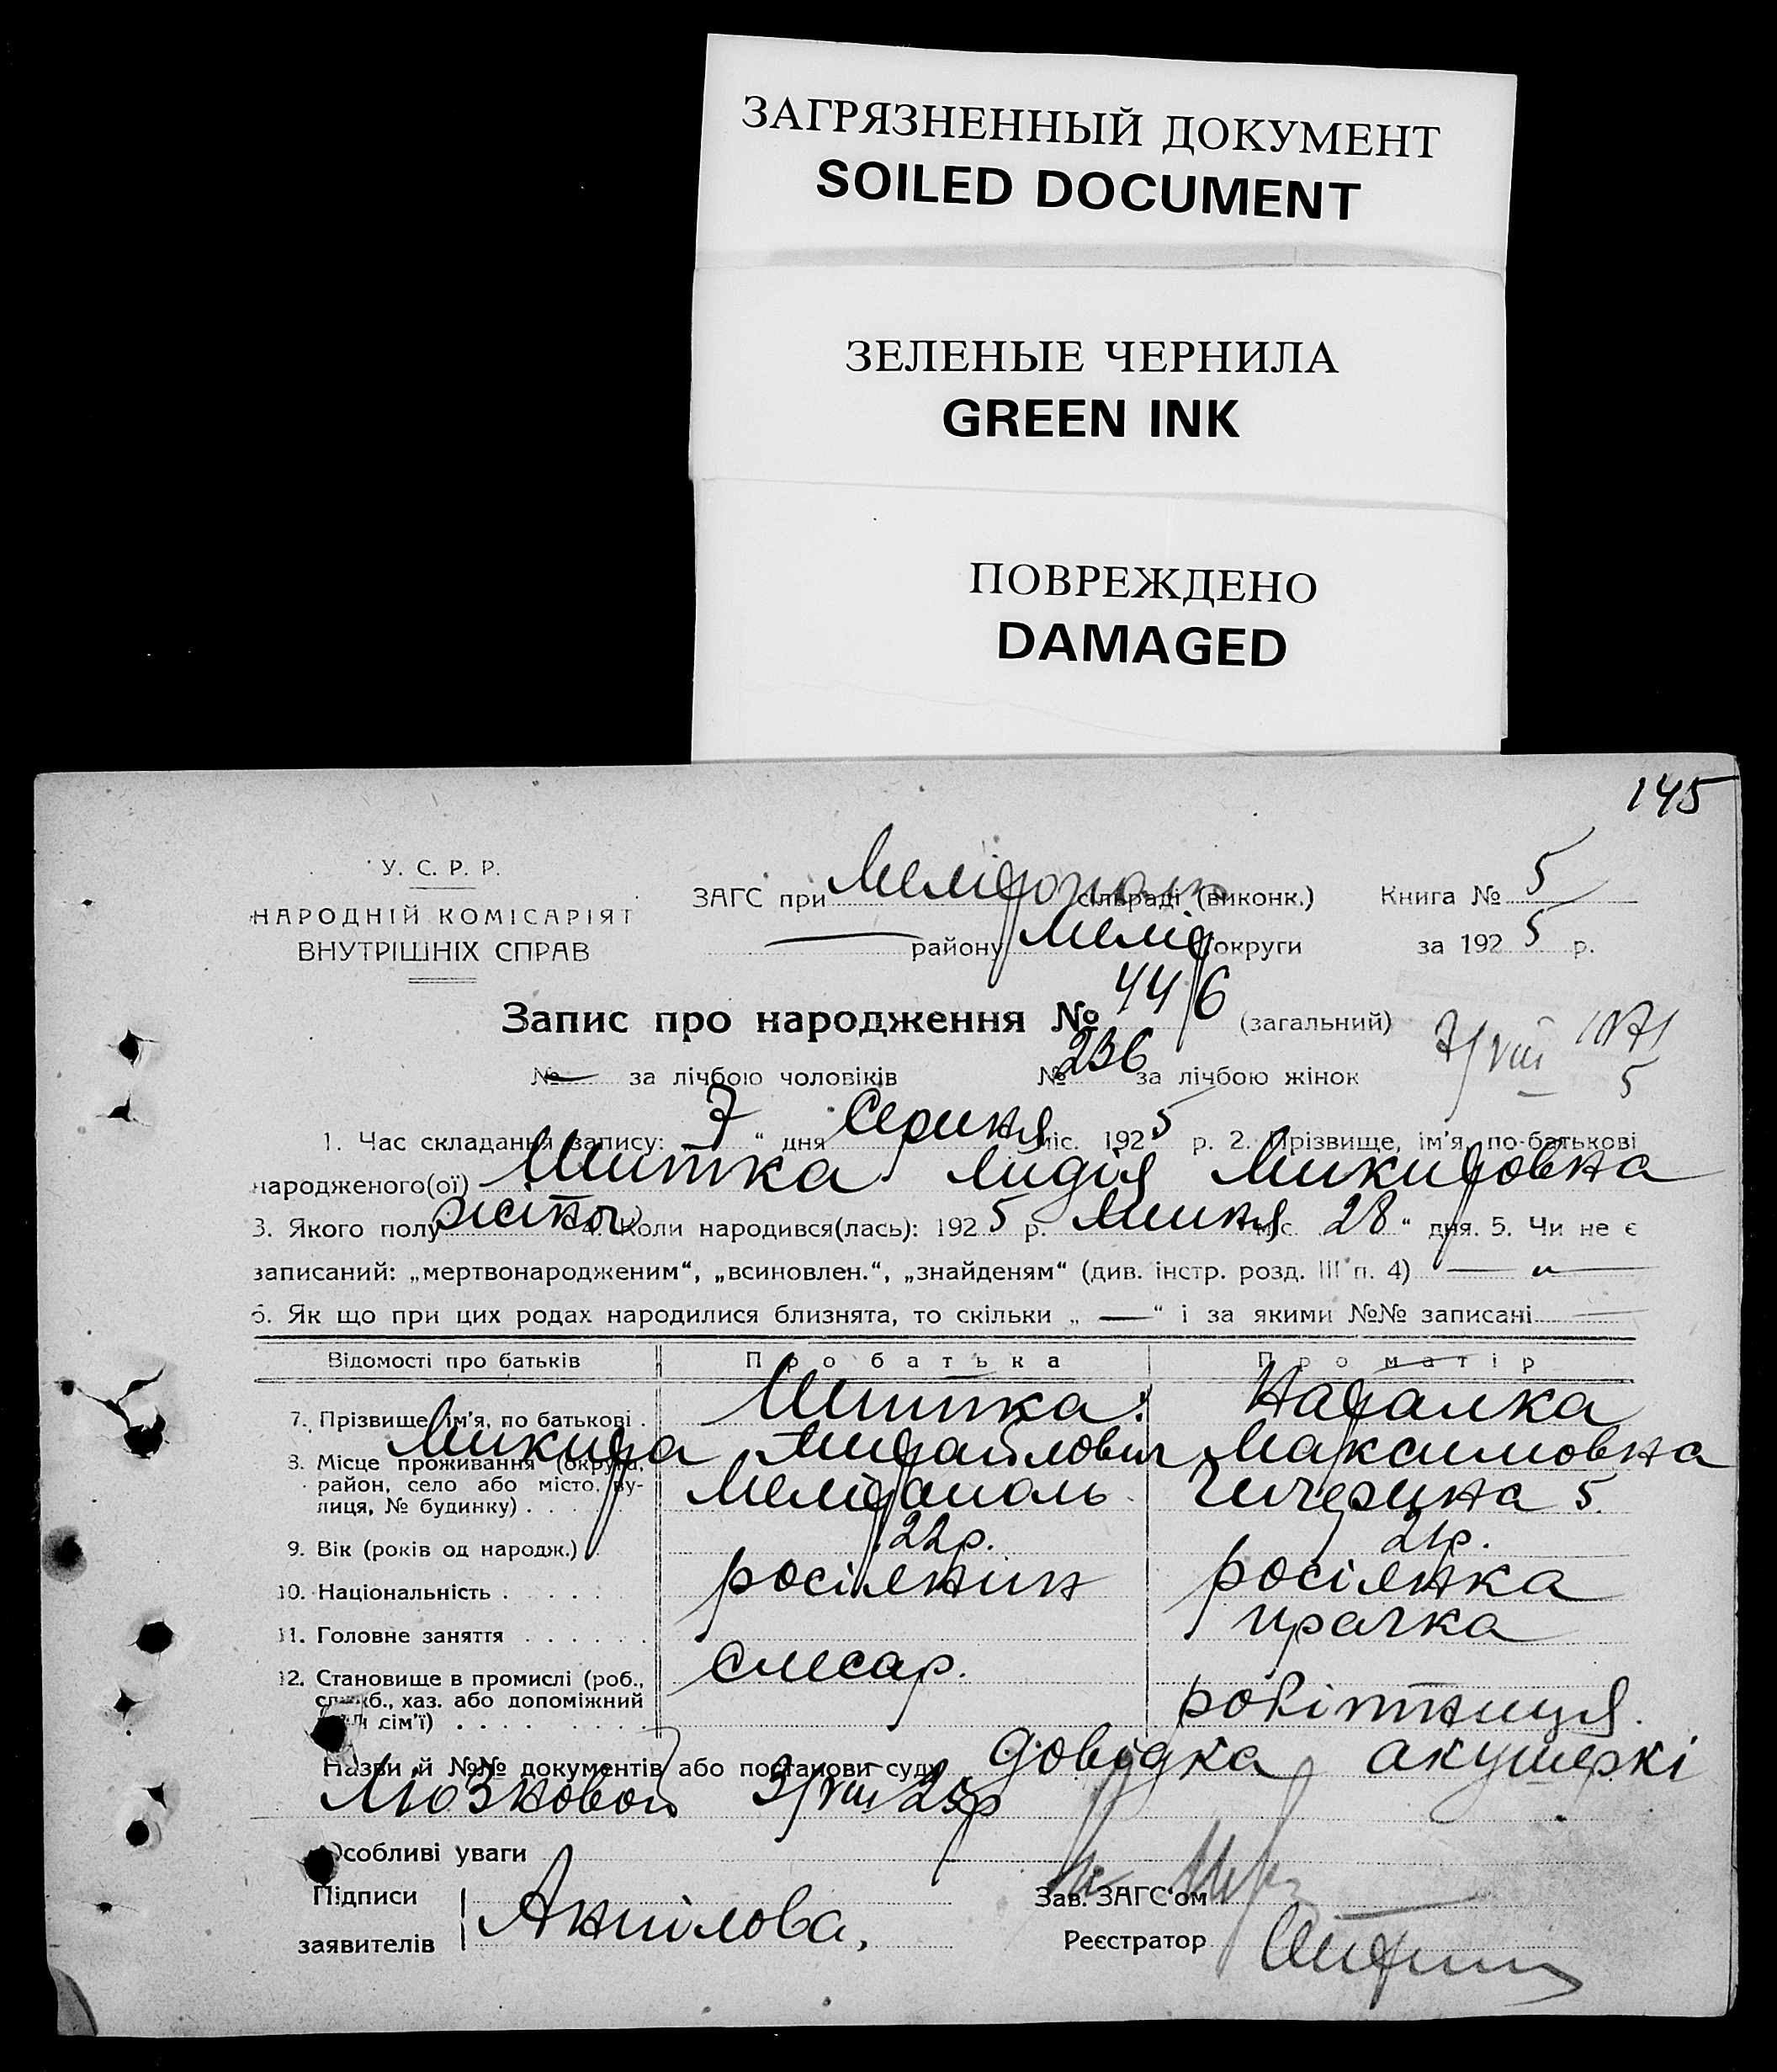 ЗАГРЯЗНЕННЫЙ ДОКУМЕНТ
SOILED DOCUMENT
ЗЕЛЕНЫЕ ЧЕРНИЛА
GREEN INK
ПОВРЕЖДЕНО
DAMAGED
145
У. С. Р. Р.
НАРОДНІЙ КОМІСАРІЯТ
ВНУТРІШНІХ СПРАВ
ЗАГС при сільраді (виконк.) Книга № 5
району Меліт округи за 1925 р.
Запис про народження № 44/6 (загальний)
7/VIII
5
№ — за лічбою чоловіків № 236 за лічбою жінок
1. Час складання запису: 7 " дня Серпня міс. 1925 р. 2. Прізвище, ім'я, по-батькові
народженого(ої) Шитка Лидія Микитовна
3. Якого полу жіноч 4. Коли народився(лась): 1925 р. Липня міс. 28 " дня. 5. Чи не є
записаний: „мертвонародженим", „всиновлен.", „знайденям" (див. інстр. розд. III п. 4) — " —
6. Як що при цих родах народилися близнята, то скільки „ — " і за якими №№ записані —
Відомості про батьків Про батька Про матір
7. Прізвище, ім'я, по батькові . Шитка. Наталка
Микита Михайлович Максимовна
8. Місце проживання (округа,
район, село або місто, ву-
лиця, № будинку) . . . Мелітополь Чичерина 5.
9. Вік (років од народж.) . 22р. 21р.
10. Національність . . . . . росіянин росіянка
11. Головне заняття . . . . . . прачка
слесар.
12. Становище в промислі (роб.,
служб., хаз. або допоміжний
член сім'ї) . . . . . . . . робітниця.
Назви й №№ документів або постанови суду довідка акушеркі
Любковой 3/VIII 25р
Особливі уваги
Підписи
заявителів Анпілова,
Зав. ЗАГС'ом
Реєстратор